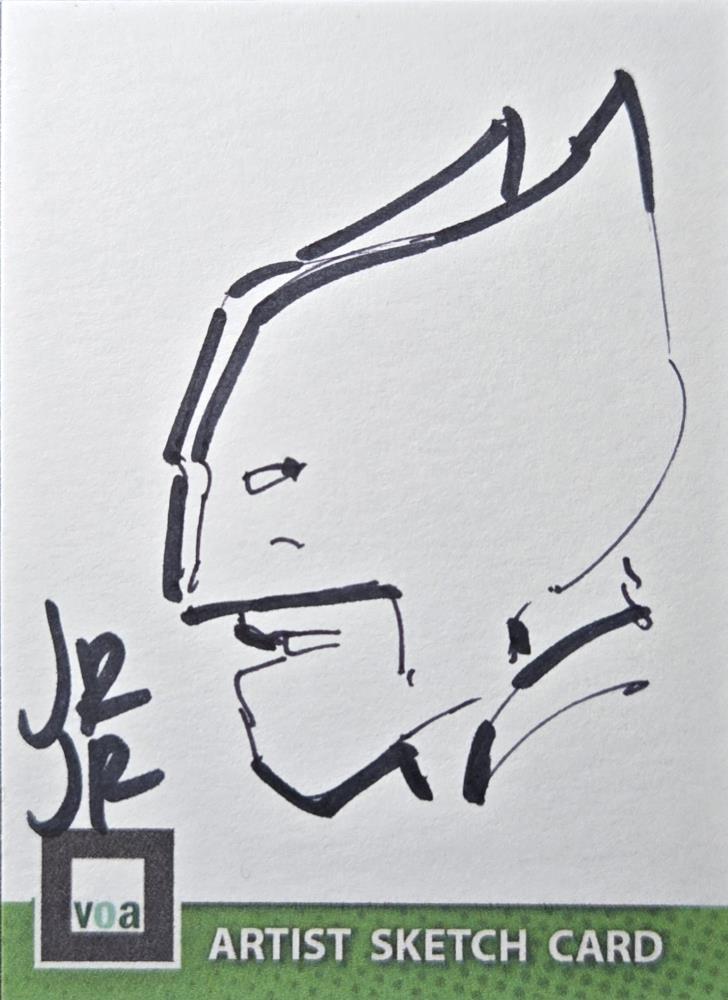 JR
JR
voa
ARTIST SKETCH CARD